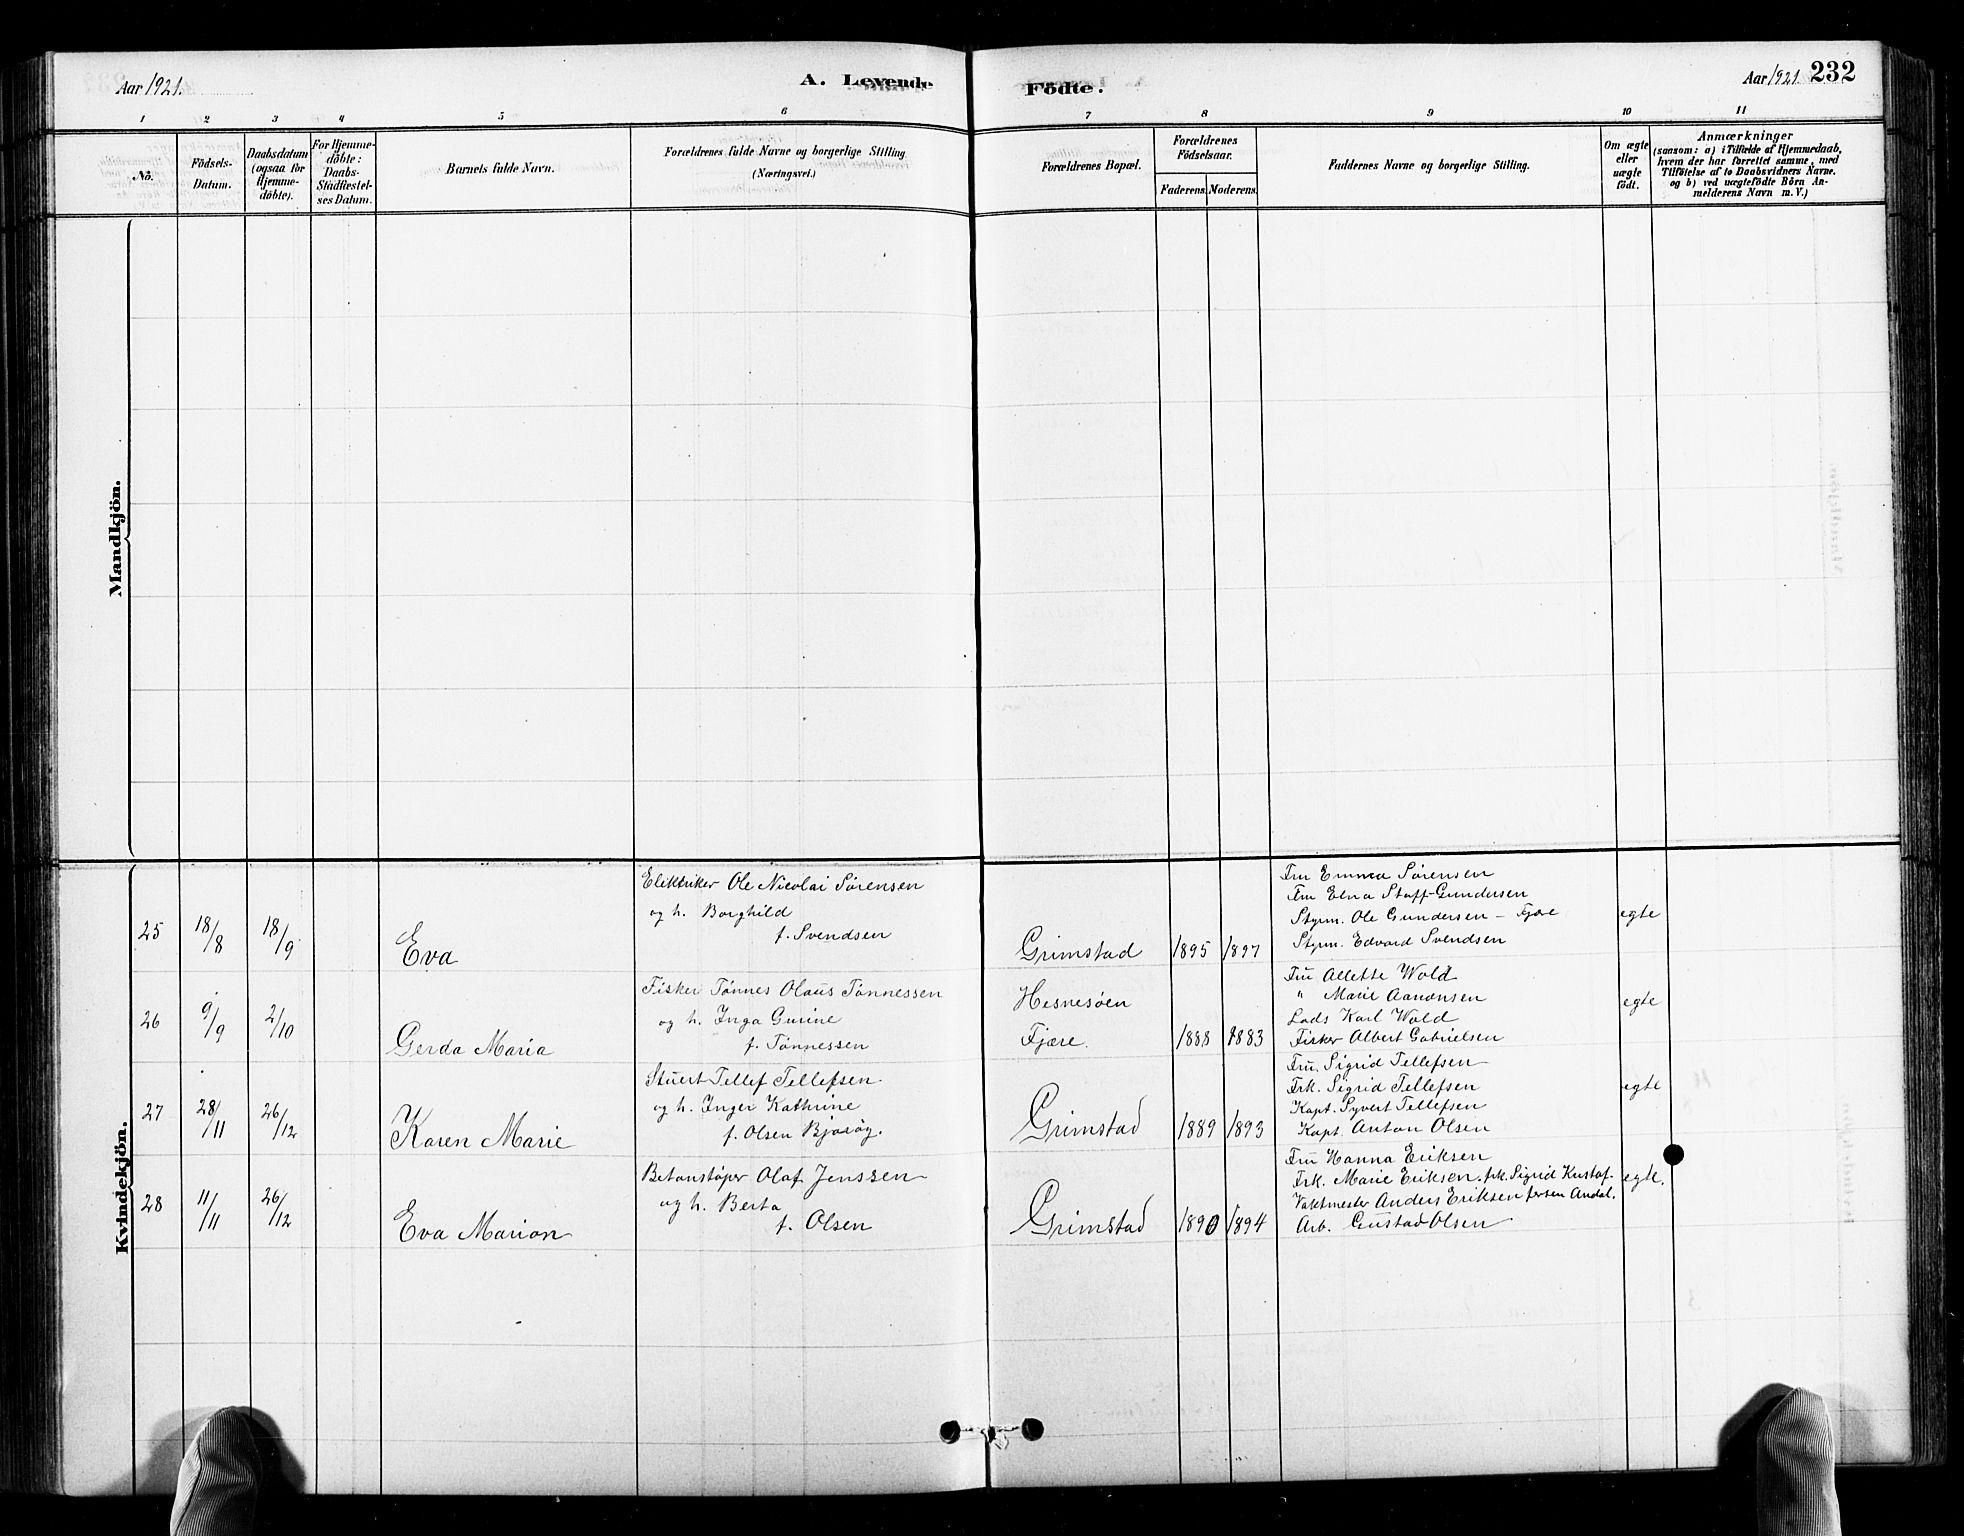 Aar 1921.
A. Levende
Födte.
Aar 1921 232
1 2 3 4 5 6 7 8 9 10 11
No.
Födsels-
Datum.
Daabsdatum
(ogsaa for
Hjemme-
döbte).
For Hjemme-
döbte:
Daabs-
Stadfæstel-
ses Datum.
Barnets fulde Navn.
Forældrenes fulde Navne og borgerlige Stilling
(Næringsvei.)
Forældrenes Bopæl.
Forældrenes
Födselsaar.
Faderens. Moderens.
Faddernes Navne og borgerlige Stilling.
Om ægte
eller
uægte
födt.
Anmærkninger
(saasom: a) i Tilfælde af Hjemmedaab,
hvem der har forrettet samme, med
Tilföielse af to Daabsvidners Navne.
og b) ved uægtefödte Börn An-
melderens Navn m. V.)
Mandkjön.
Kvindekjön.
25 18/8 18/9 Eva
Elektriker Ole Nicolai Sørensen
og h. Borghild
f. Svendsen
Grimstad 1895 1897
Fru Emma Sørensen
Fru Elna Staff-Gundersen
Styrm. Ole Gundersen – Fjære
Styrm. Edvard Svendsen
egte
26 9/9 2/10 Gerda Maria
Fisker Tønnes Olaus Tønnessen
og h. Inga Gurine
f. Tønnessen
Hesnesøen
Fjære. 1888 1883
Fru Allette Wold
" Marie Aanonsen
Lods Karl Wold
Fisker Albert Gabrielsen
egte
27 28/11 26/12 Karen Marie
Stuert Tellef Tellefsen
og h. Inger Kathrine
f. Olsen Bjorøy.
Grimstad 1889 1893
Fru. Sigrid Tellefsen
Frk. Sigrid Tellefsen
Kapt. Syvert Tellefsen
Kapt. Anton Olsen
egte
28 11/11 26/12 Eva Marion
Betonstøper Olaf Jenssen
og h. Berta
f. Olsen
Grimstad 1890 1894
Fru Hanna Eriksen
Frk. Marie Eriksen. frk. Sigrid Kustof-
Vaktmester Anders Eriksen fersen Arndal.
Arb. Gustav Olsen
egte.